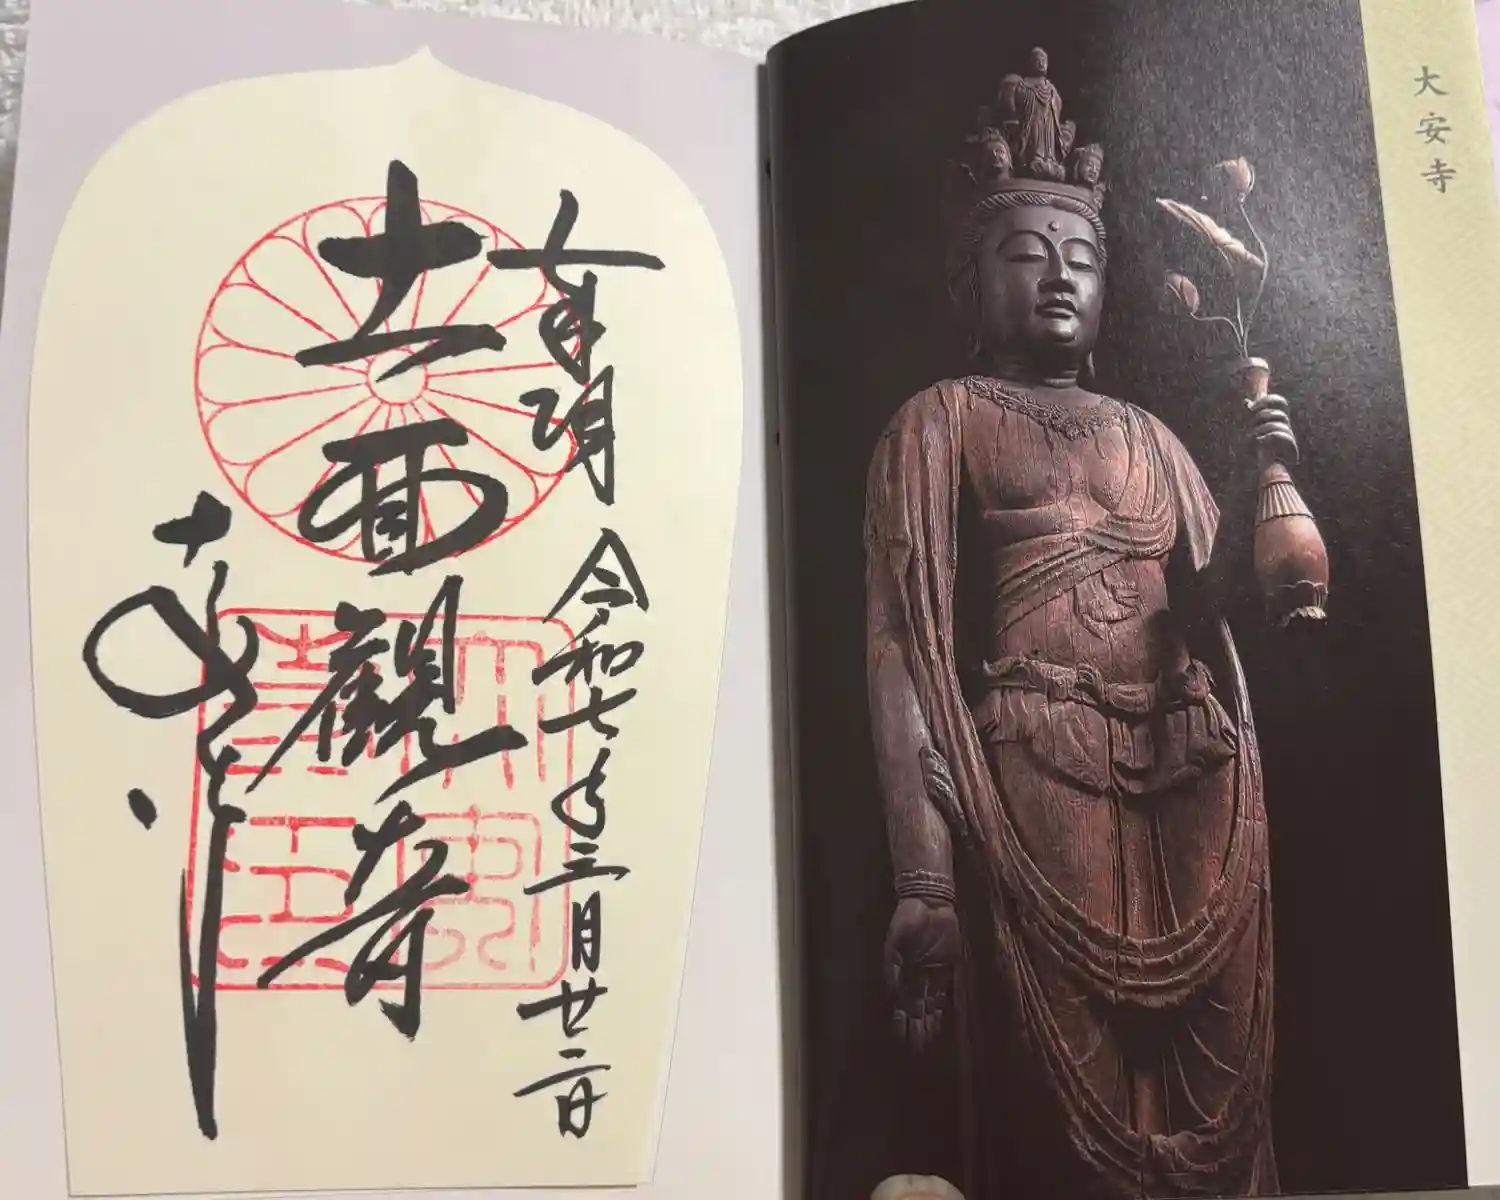 大安寺
奉拝 令和七年三月廿二日
十一面觀音
大安寺